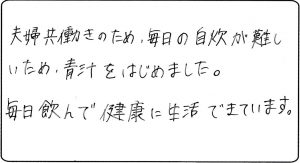 夫婦共働きのため、毎日の自炊が難し
いため、青汁をはじめました。
毎日飲んで健康に生活できています。